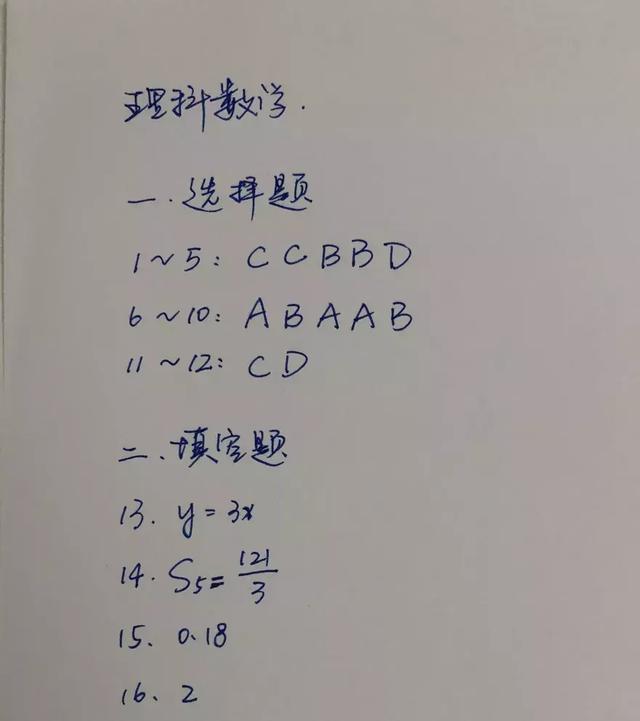 理科数学.
一.选择题
1~5: C C B B D
6~10: A B A A B
11~12: C D
二.填空题
13. y=3x
14. S₅=121/3
15. 0.18
16. 2